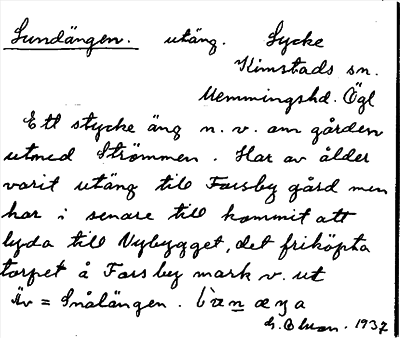 Sundängen. utäng. Lycke
Kimstads sn.
Memmingshd. Ögl
Ett stycke äng n.v. om gården
utmed Strömmen. Har av ålder
varit utäng till Forsby gård men
har i senare till kommit att
lyda till Nybygget, det friköpta
torpet å Forsby mark v. ut
Äv = Snålängen.
1937